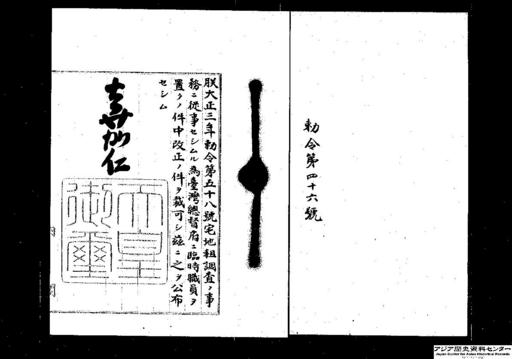 勅令第四十六號
朕大正三年勅令第五十八號宅地租調査ノ事
務ニ從事セシムル為臺灣總督府ニ臨時職員ヲ
置クノ件中改正ノ件ヲ裁可シ茲ニ之ヲ公布
セシム
嘉仁
天皇
御璽
アジア歴史資料センター
Japan Center for Asian Historical Records